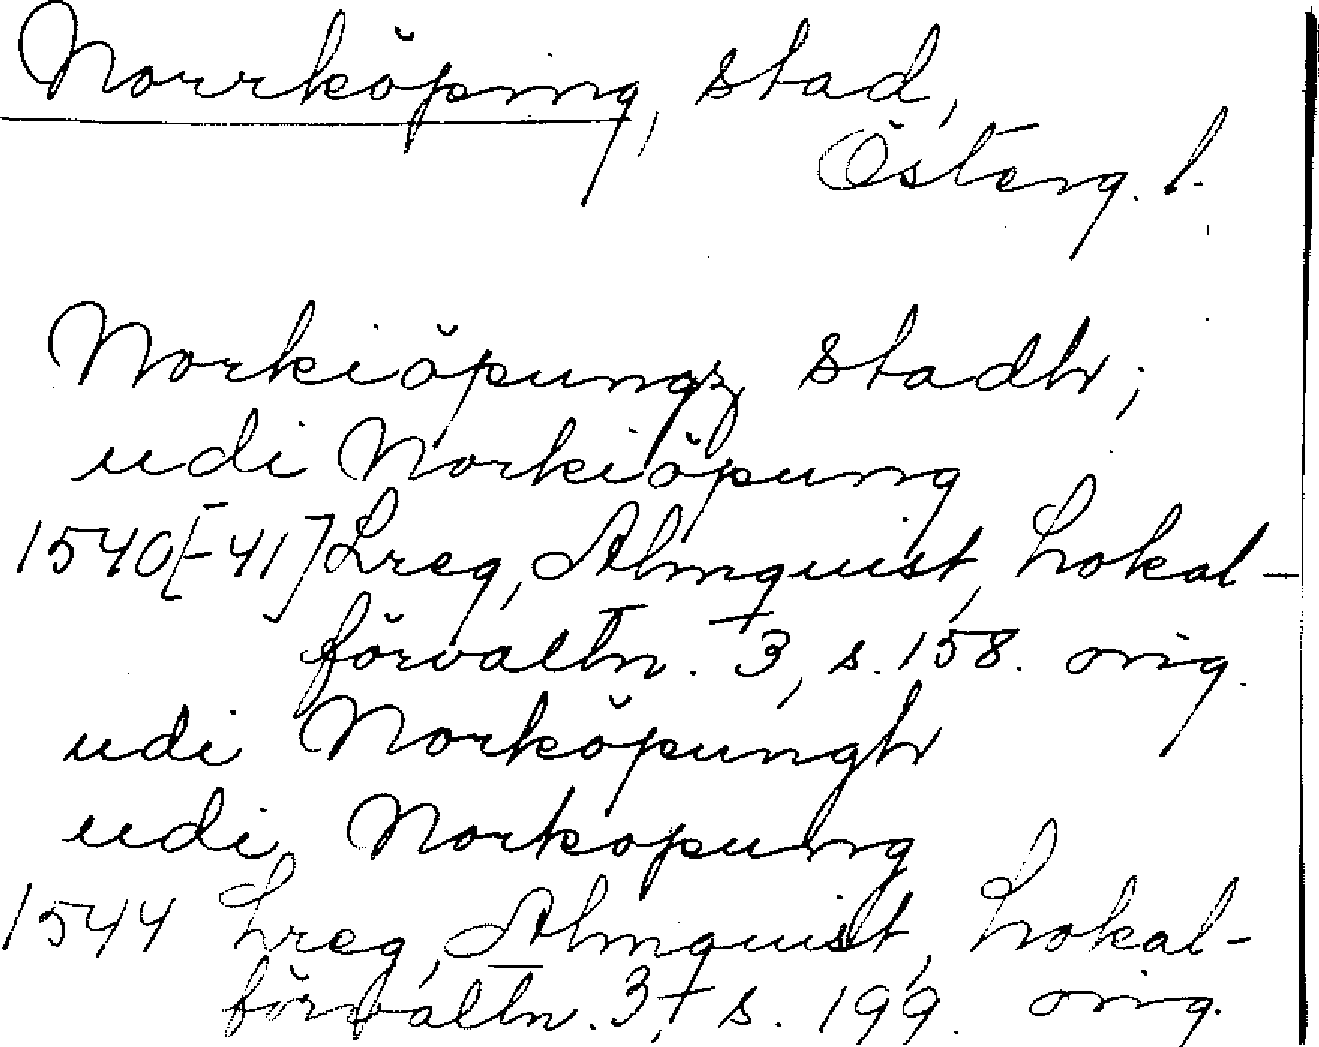 Norrköping, stad,
Österg. l.
Norkiöpungz stadh;
udi Norkiöpung
1540[-41] Lreg, Almquist, Lokal-
förvaltn. 3, s. 158. orig.
udi Norköpungh
udi Norkopung
1544 Lreg, Almquist, Lokal-
förvaltn. 3, s. 199. orig.